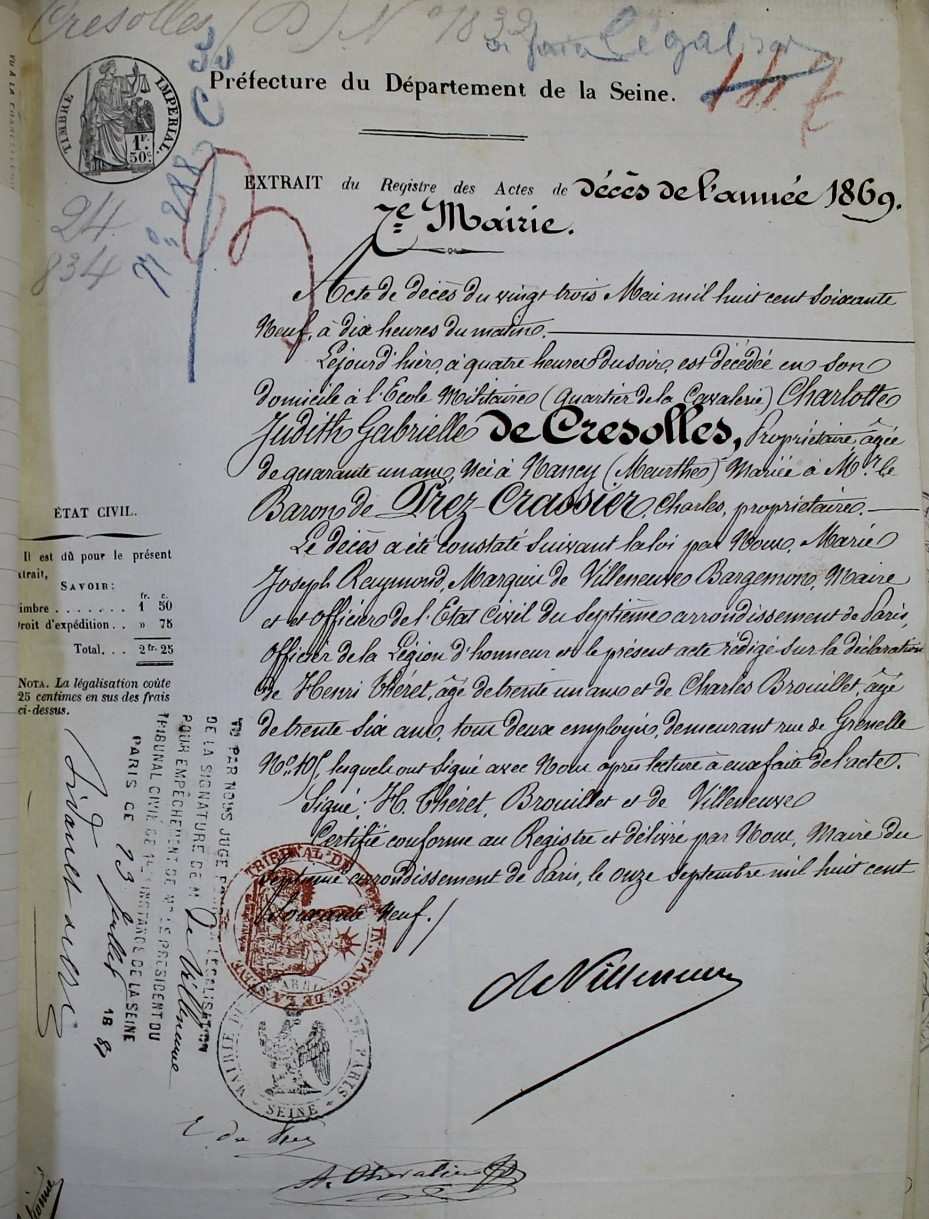 Cresolles (D) No 1832
Légaliser
Préfecture du Département de la Seine.
TIMBRE IMPÉRIAL.
1F.
50c.
No 288
C 32
117
24
834
EXTRAIT du Registre des Actes de décès de l'année 1869.
7e Mairie.
Acte de décès du vingt trois Mai mil huit cent soixante
Neuf, à dix heures du matin.
Le jour d'hier, à quatre heures du soir, est décédée en son
domicile à l'École Militaire (Quartier de la Cavalerie) Charlotte
Judith Gabrielle de Cresolles, Propriétaire, âgée
de quarante un ans, Née à Nancy (Meurthe) Mariée à Mr. le
Baron de Prez-Crassier, Charles, propriétaire.
Le décès a été constaté suivant la loi par Nous, Marie
Joseph Raymond, Marquis de Villeneuve Bargemon, Maire
et officier de l'État Civil du Septième arrondissement de Paris,
Officier de la Légion d'honneur et le présent acte rédigé sur la déclaration
de Henri Théret, âgé de trente un ans et de Charles Brouillet, âgé
de trente six ans, tous deux employés, demeurant rue de Grenelle
No. 105, lesquels ont signé avec Nous après lecture à eux faite de l'acte.
Signé: H. Théret, Brouillet et de Villeneuve
Certifié conforme au Registre et délivré par Nous, Maire du
Septième arrondissement de Paris, le onze Septembre mil huit cent
Soixante Neuf./
de Villeneuve
ÉTAT CIVIL.
Il est dû pour le présent
xtrait,
SAVOIR:
fr. c.
imbre . . . . . . . 1 50
Droit d'expédition . . » 75
Total. . . 2 fr. 25
NOTA. La légalisation coûte
25 centimes en sus des frais
ci-dessus.
VU PAR NOUS JUGE POUR LÉGALISATION
DE LA SIGNATURE DE M De Villeneuve
POUR EMPÊCHEMENT DE M. LE PRÉSIDENT DU
TRIBUNAL CIVIL DE 1re INSTANCE DE LA SEINE
PARIS CE 13 Juillet 188
TRIBUNAL DE 1re INSTANCE DE LA SEINE
MAIRIE DU DE PARIS
SEINE
A. Chevalier